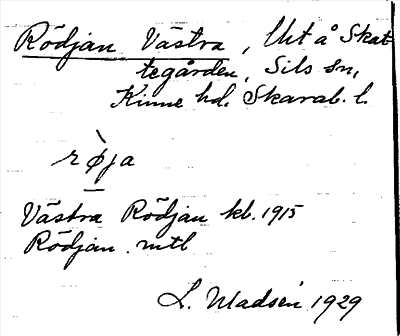 Rödjan Västra, lht å Skat-
tegården, Sils sn,
Kinne hd. Skarab. l.
rø̀ja
Västra Rödjan kb. 1915
Rödjan. mtl
L. Madsén 1929